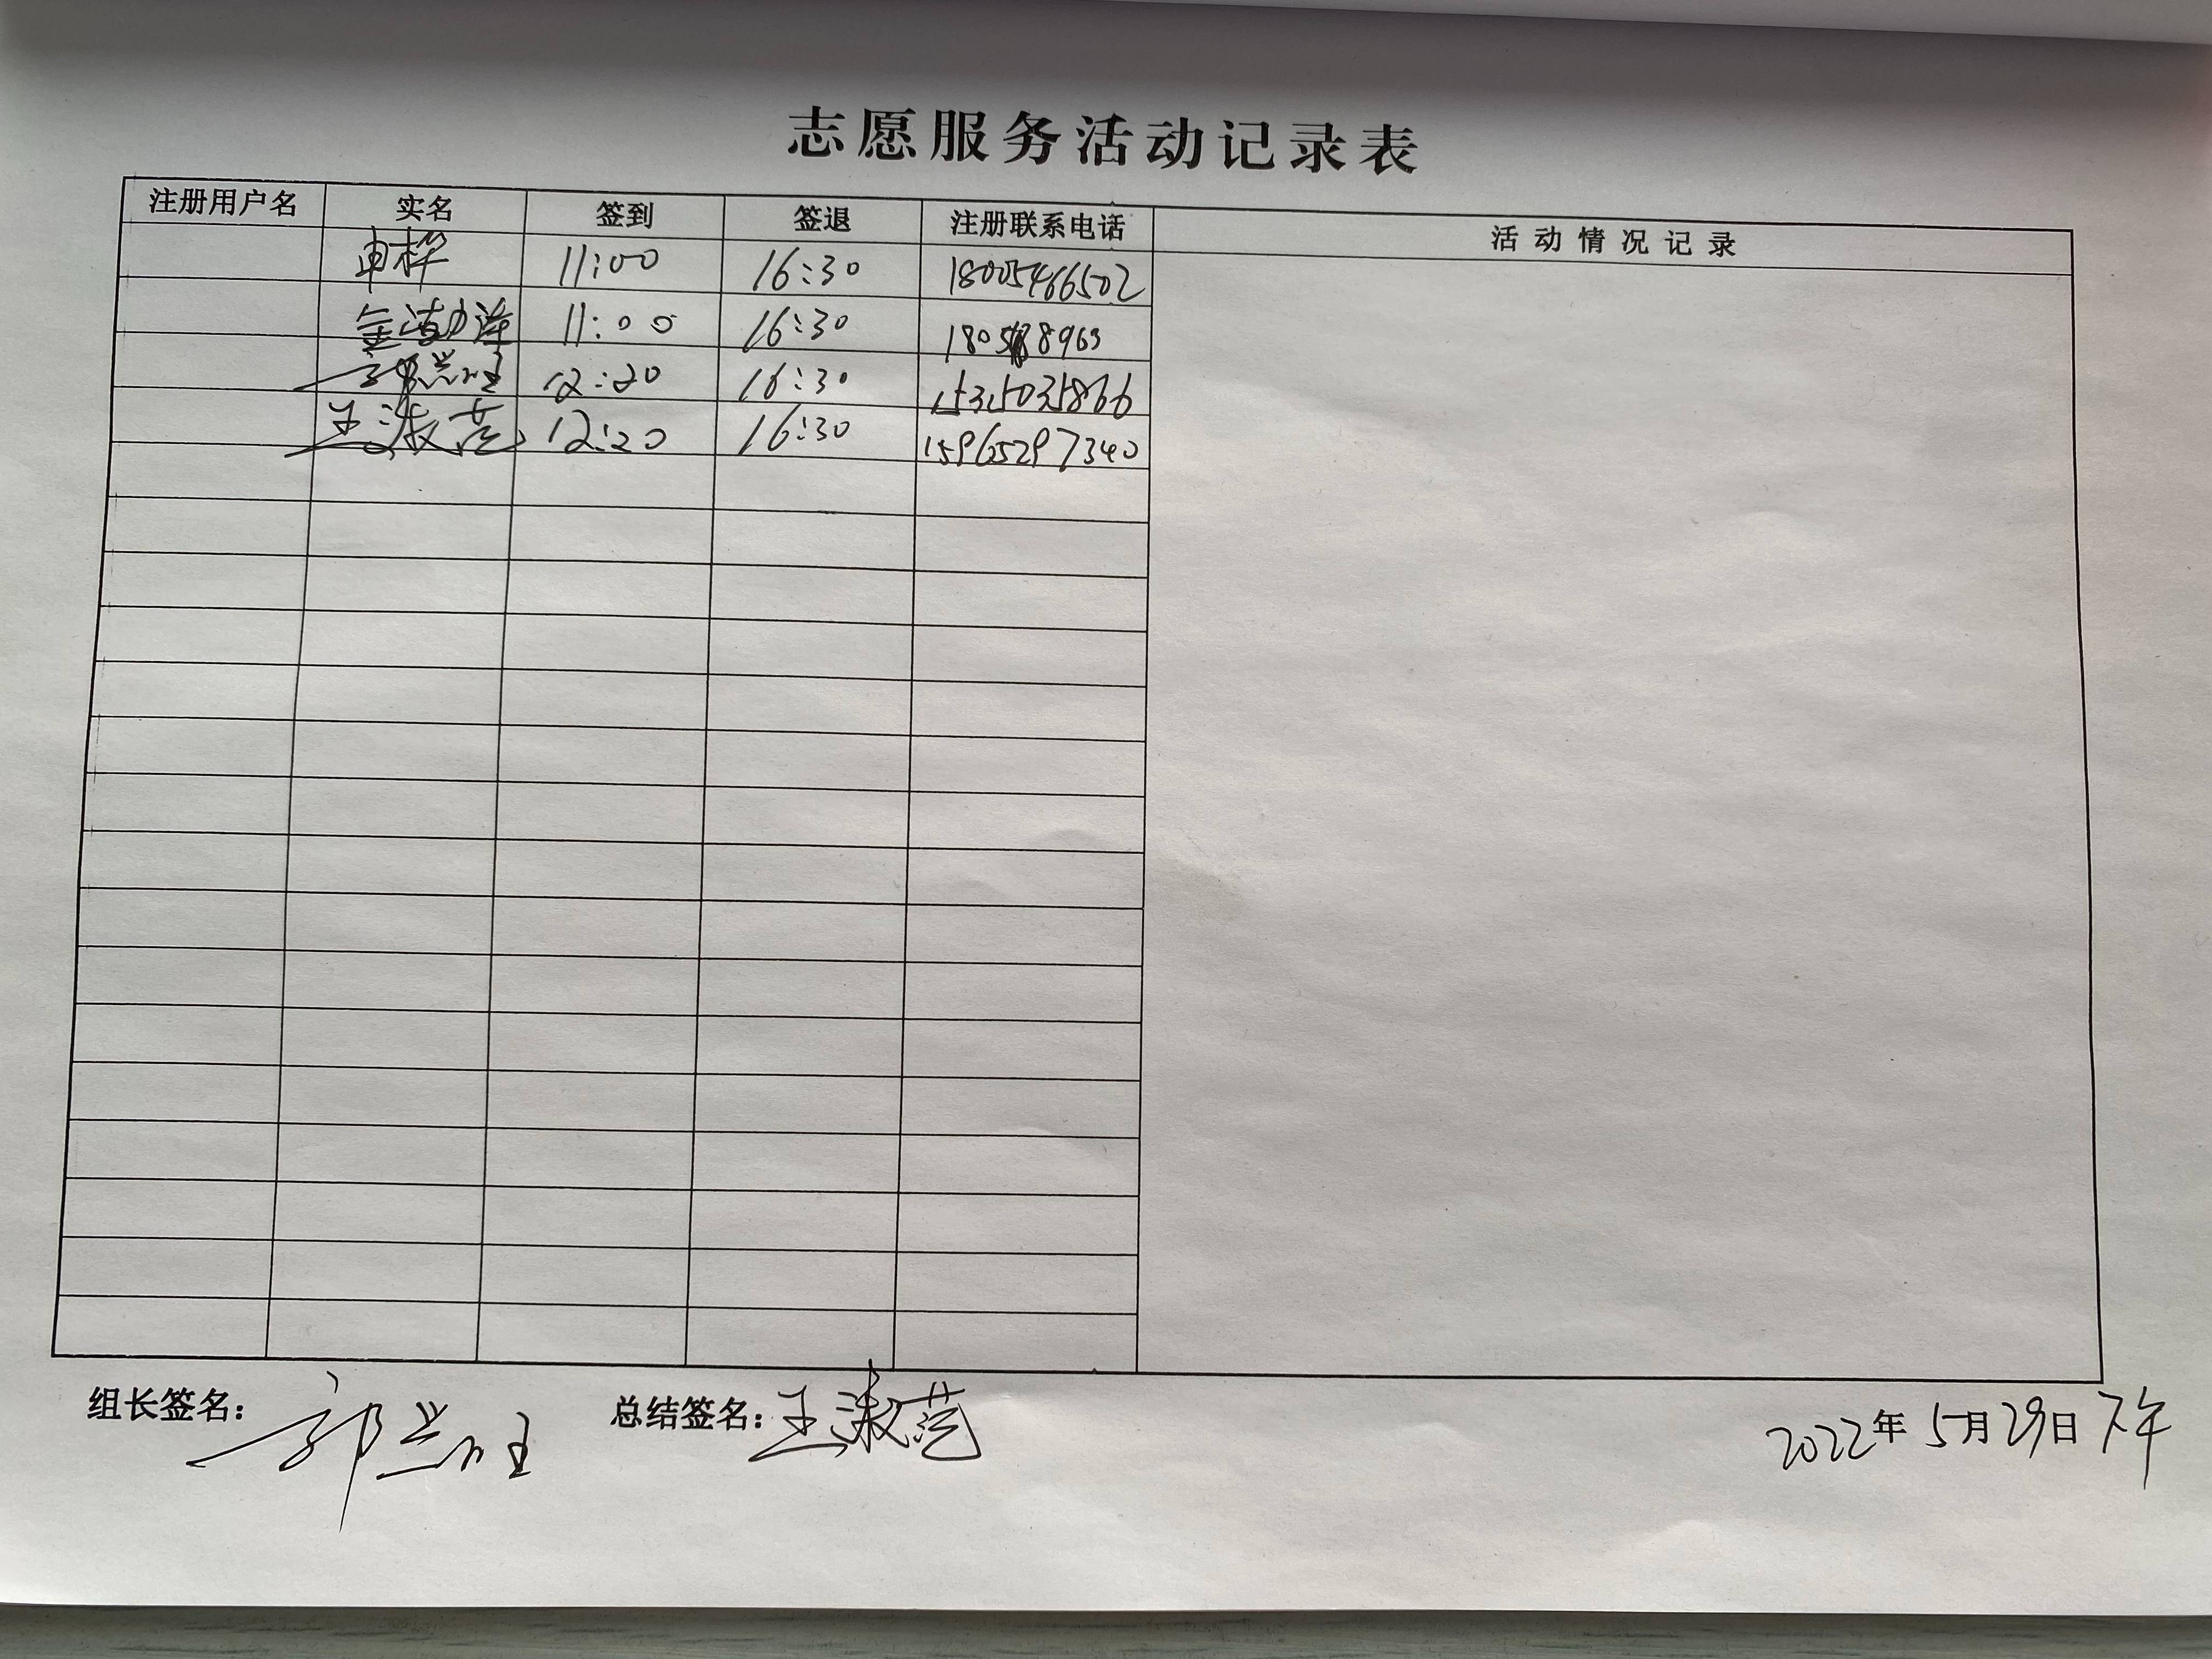 志愿服务活动记录表
注册用户名 实名 签到 签退 注册联系电话 活动情况记录
11:00 16:30 18005466502
金渤洋 11:00 16:30
郭兴旺 12:20 16:30 15315035866
王淑芸 12:20 16:30 15965297340
组长签名： 郭兴旺 总结签名： 王淑芸 2022年5月29日下午